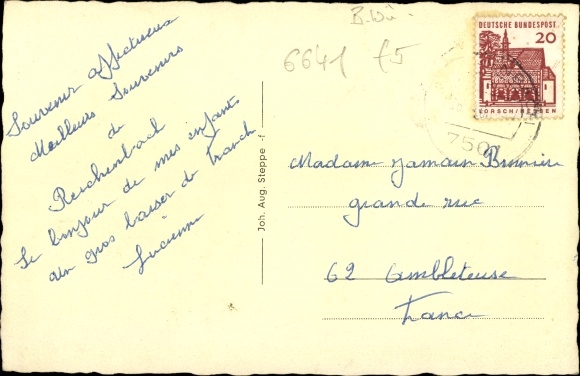 Souvenir affectueux
Meilleurs Souvenirs
de
Reichenbach
Le bonjour de mes enfants
un gros baiser de Franck
Lucienne
Joh. Aug. Steppe -f
B.Wü.
6641 f5
DEUTSCHE BUNDESPOST
20
LORSCH/HESSEN
750
Madame Jamain Brunière
grande rue
62 Ambleteuse
France